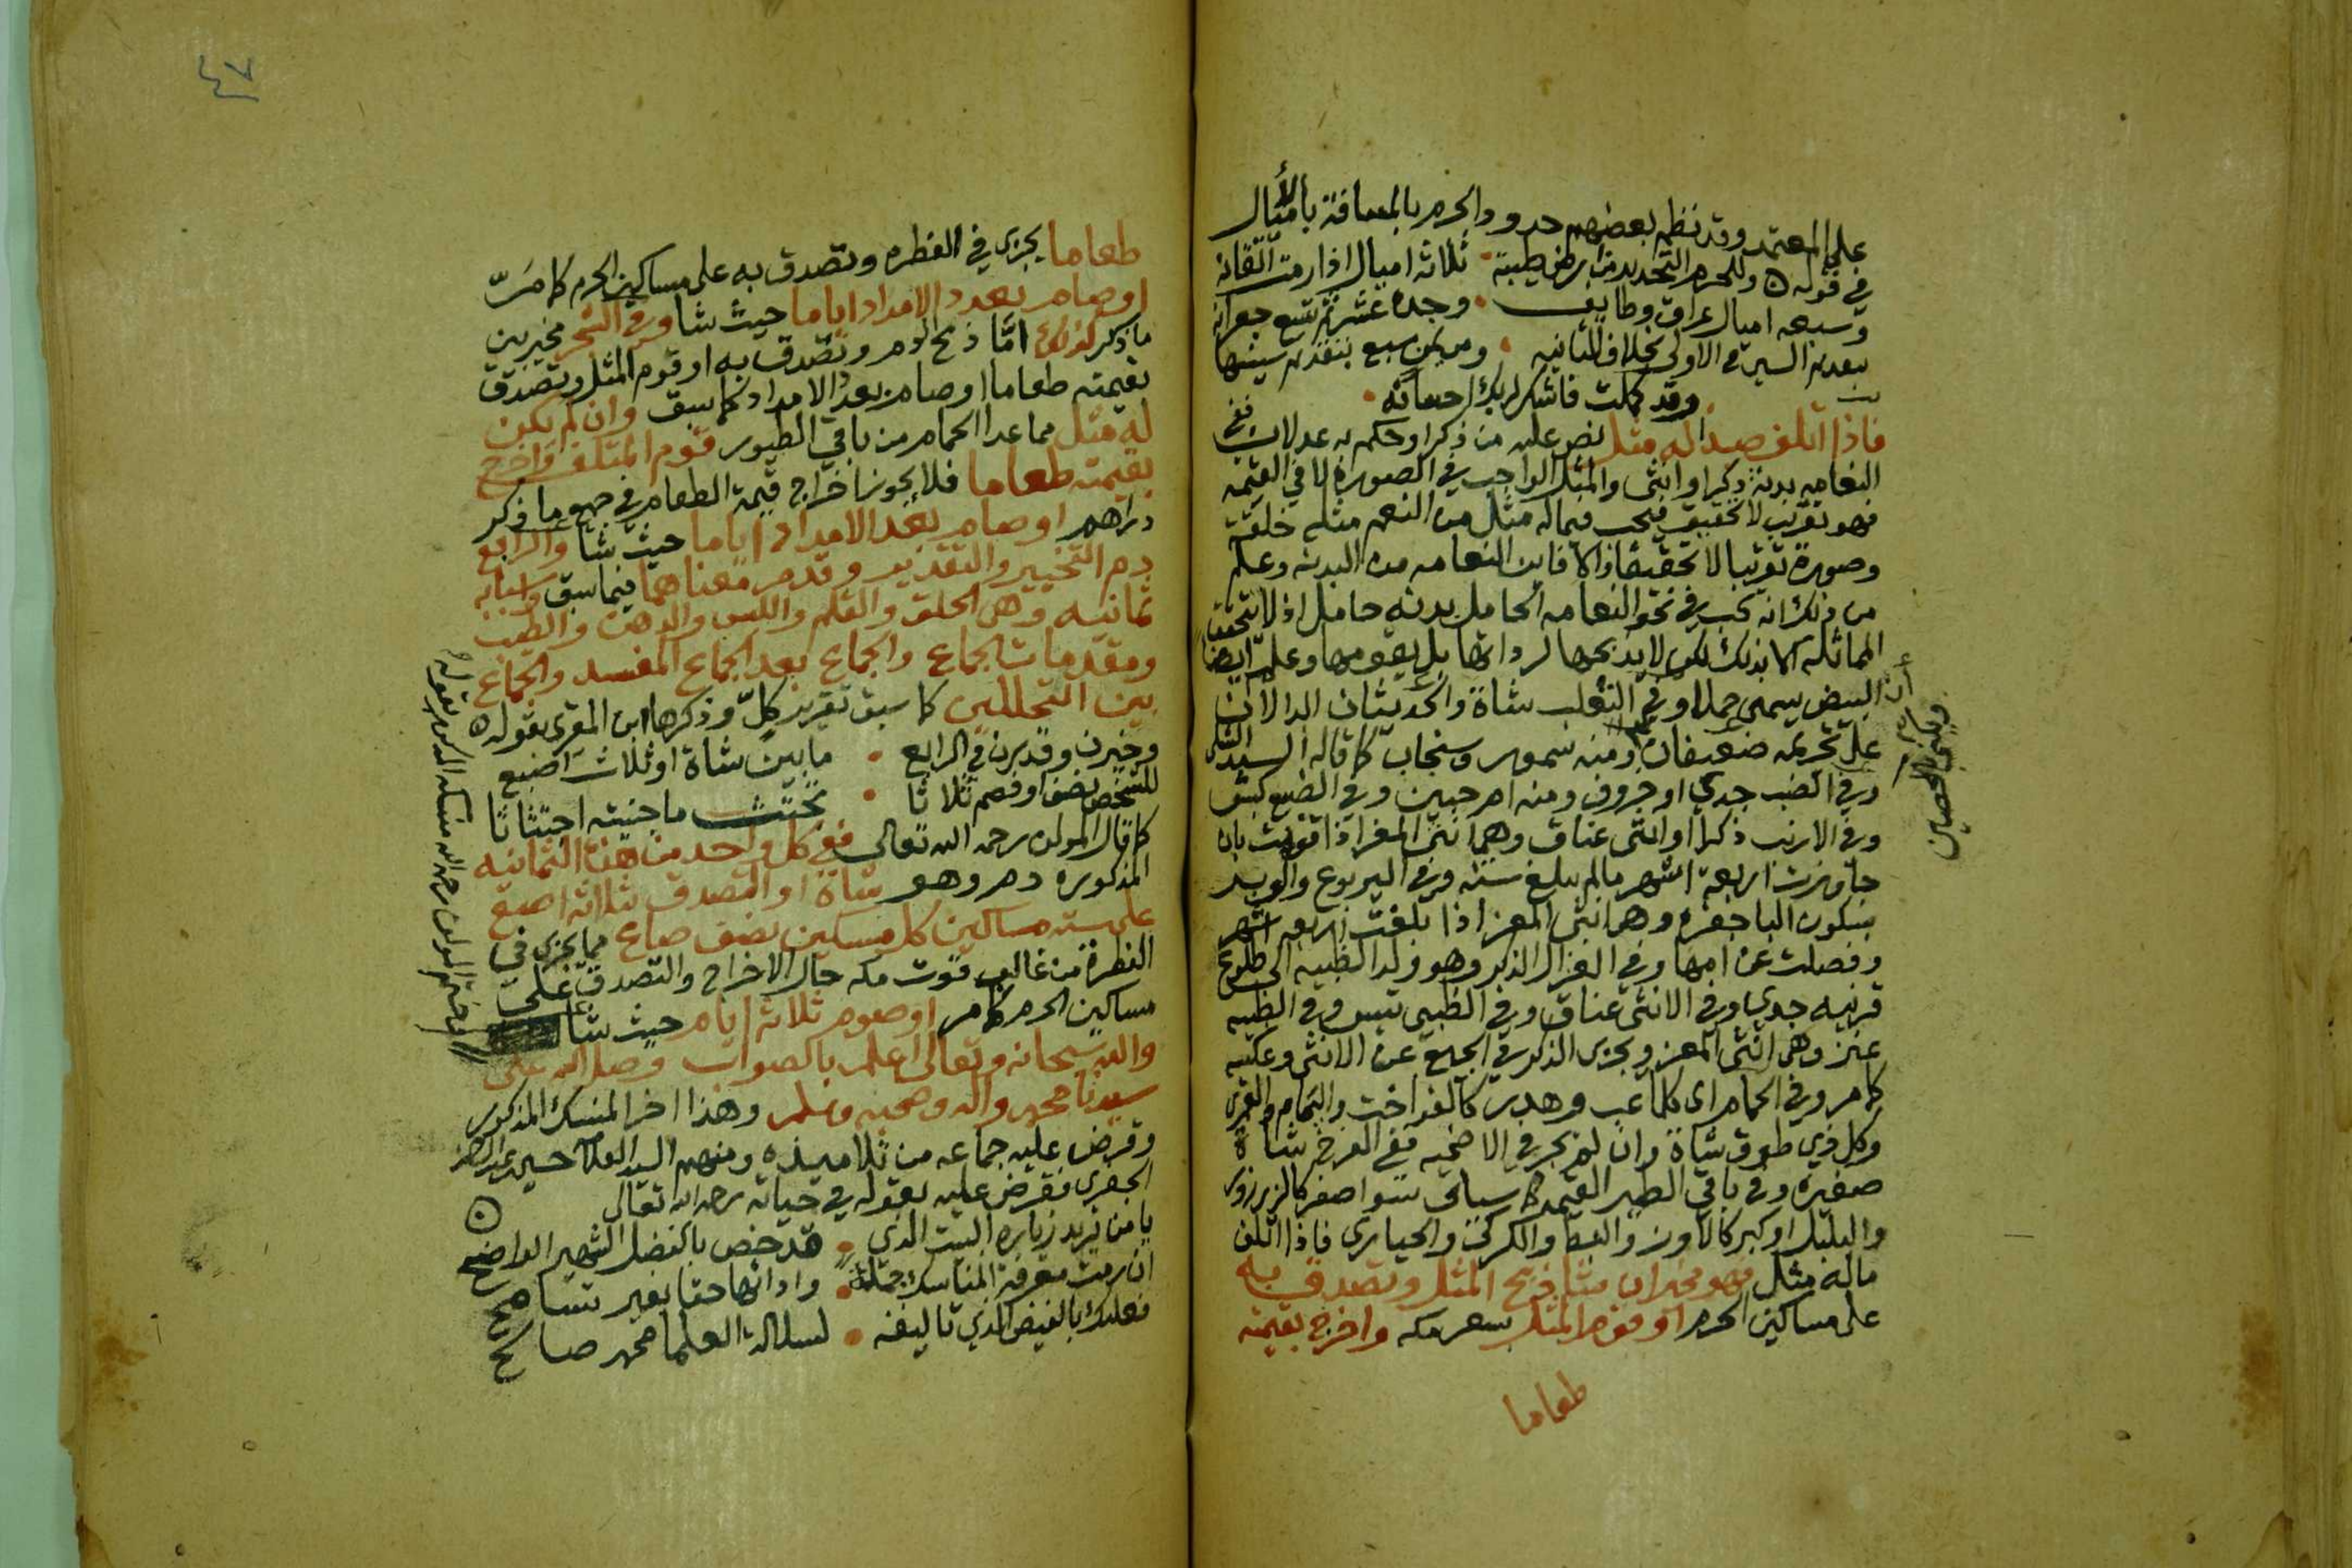 على المعتمد وقد نظم بعضهم حدود الحرم بالمسافة بالأميال
في قوله وللحرم التحديد من ارض طيبة ثلاثه اميال اذا رمت اتقانه
وسبعه اميال عراق وطايف وجده عشر ثم تسع جعرانه
بتقديم السين في الاولى بخلاف الثانيه ومن يمن سبع بتقديم سينها
وقد كملت فاشكر لربك احسانه
فاذا اتلف صيدا له مثل نص عليه من ذكر او حكم به عدلان ففي
النعامه بدنة ذكرا او انثى والمثل الواجب في الصورة لا في القيمه
فهو تقريب لا تحقيق فيجب فيما له مثل من النعم مثله خلقة
وصورة تقريبا لا تحقيقا والا فاين النعامه من البدنه وعلم
من ذلك انه يجب في نحو النعامه الحامل بدنه حامل اذ لا تتحقق
المماثله الا بذلك لكن لا يذبحها لرداتها بل يقومها وعلم ايضا
أن البيض يسمى حملا وفي الثعلب شاة والحديثان الدالان
على تحريمه ضعيفان ومنه سمور وسنجاب كما قاله السيد
وفي الضب جدي او خروف ومنه ام حبين وفي الضبع كبش
وفي الارنب ذكرا او انثى عناق وهي انثى المعز اذا قويت بان
جاوزت اربعة اشهر مالم تبلغ سنه وفي اليربوع والوبر
بسكون البا جفره وهي انثى المعز اذا بلغت اربعه اشهر
وفصلت عن امها وفي الغزال الذكر وهو ولد الظبيه الى طلوع
قرنيه جدي وفي الانثى عناق وفي الظبي تيس وفي الظبيه
عنز وهي انثى المعز ويجزى الذكر في الجميع عن الانثى وعكسه
كما مر وفي الحمام اى كلما عب وهدر كالفواخت واليمام والقمرى
وكل ذي طوق شاة وان لم تجز في الاضحيه ففي الفرخ شاة
صغيره وفي باقي الطير القيمه كما سياتى سوا صغر كالزرزور
والبلبل او كبر كالاوز والبط والكركي والحبارى فاذا اتلف
ماله مثل فهو مخير ان شا ذبح المثل وتصدق به
على مساكين الحرم او قوم المثل بسعر مكه واخرج بقيمته
طعاما
٤٧
طعاما يجزى في الفطره وتصدق به على مساكين الحرم كما مرّ
او صام بعدد الامداد اياما حيث شا وفي الشجر مخير بين
ما ذكر كذلك امّا ذبح الدم وتصدق به او قوم المثل وتصدق
بقيمته طعاما او صام بعدد الامداد كما سبق وان لم يكن
له مثل مما عدا الحمام من باقي الطيور قوم المتلف واخرج
بقيمته طعاما فلا يجوز اخراج قيمة الطعام في جميع ما ذكر
دراهم او صام بعدد الامداد اياما حيث شا والرابع
دم التخيير والتقدير وقدم معناهما فيما سبق واسبابه
ثمانيه وهي الحلق والقلم واللبس والدهن والطيب
ومقدمات الجماع والجماع بعد الجماع المفسد والجماع
بين التحللين كما سبق تقرير كلّ وذكرها ابن المقرى بقوله
وخيرن وقدرن في الرابع ما بين شاة او ثلاث اصبع
للشخص نصف او فصم ثلاثا تجتث ما جنيته اجتثاثا
كما قال المولف رحمه الله تعالى ففي كل واحد من هذه الثمانيه
المذكوره دم وهو شاة او التصدق بثلاثة اصع
على سته مساكين كل مسكين نصف صاع مما يجزى في
الفطرة من غالب قوت مكه حال الاخراج والتصدق على
مساكين الحرم كما مر او صوم ثلاثة ايام حيث شا
والله سبحانه وتعالى اعلم بالصواب وصلى الله على
سيدنا محمد واله وصحبه وسلم وهذا اخر المنسك المذكور
وقرض عليه جماعه من تلاميذه ومنهم السيد العلامة حسين
الجفرى فقرض عليه بقوله في حياته رحمه الله تعالى
يا من يريد زياره البيت الذي قد خص بالفضل الشهير الواضح
ان رمت معرفة المناسك جملة واداتها حقا بغير تسامح
فعليك بالفيض الذي تاليفه لسلالة العلما محمد صالح